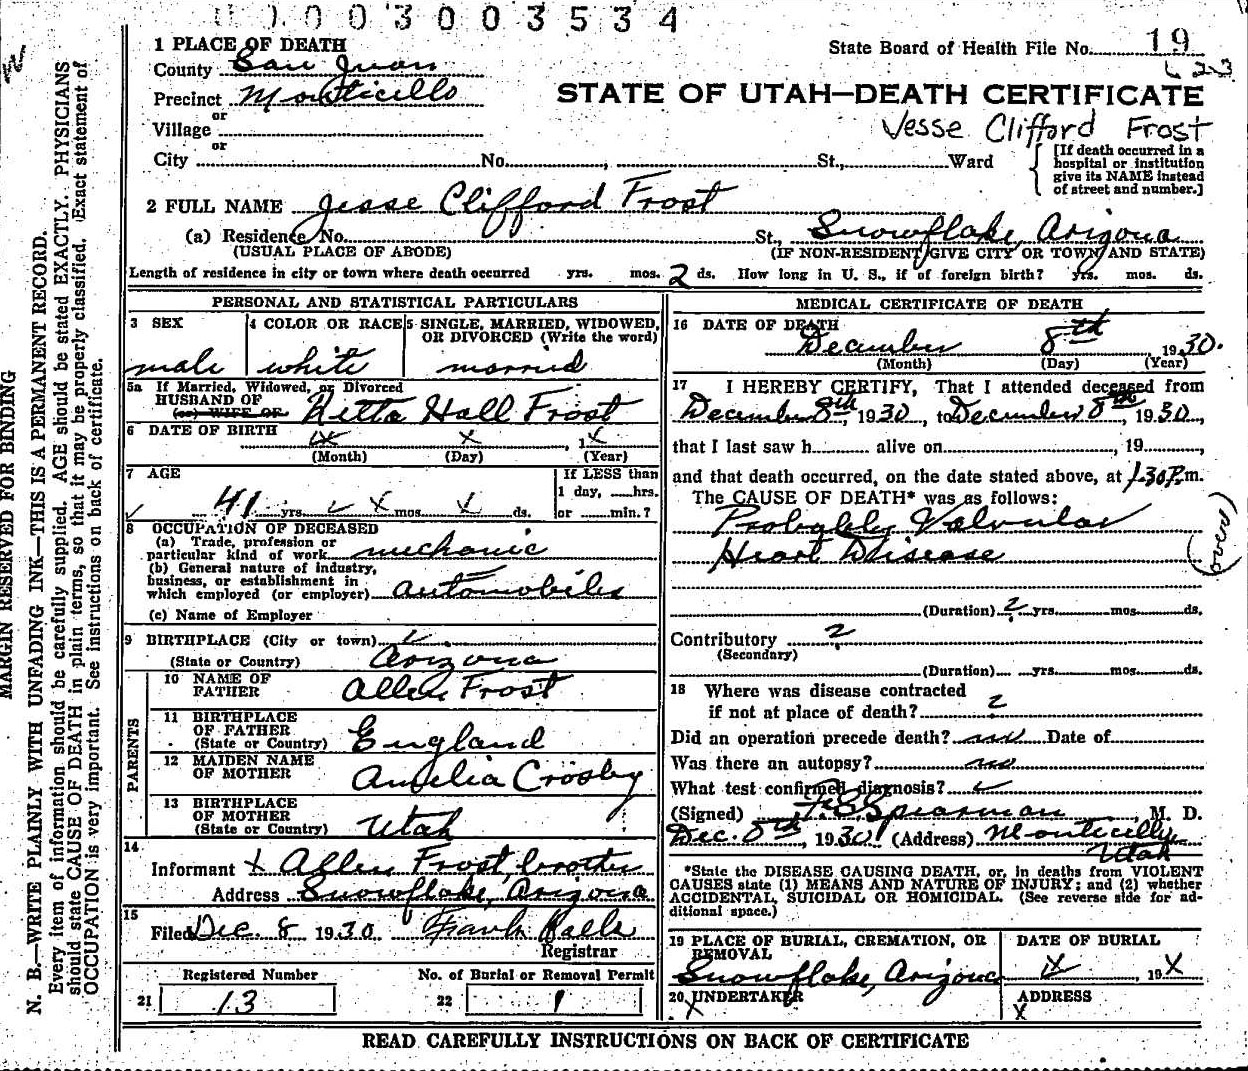 003003534
1 PLACE OF DEATH
State Board of Health File No. 19
County San Juan
623
Precinct Monticello
STATE OF UTAH—DEATH CERTIFICATE
or
Village
Jesse Clifford Frost
or
City No. , St., Ward
[If death occurred in a
hospital or institution
give its NAME instead
of street and number.]
2 FULL NAME Jesse Clifford Frost
(a) Residence No. St., Snowflake, Arizona
(USUAL PLACE OF ABODE) (IF NON-RESIDENT GIVE CITY OR TOWN AND STATE)
Length of residence in city or town where death occurred yrs. mos. 2 ds. How long in U. S., if of foreign birth? yrs. mos. ds.
PERSONAL AND STATISTICAL PARTICULARS
3 SEX 4 COLOR OR RACE 5 SINGLE, MARRIED, WIDOWED,
OR DIVORCED (Write the word)
male white married
5a If Married, Widowed, or Divorced
HUSBAND OF
(or) WIFE OF Netta Hall Frost
6 DATE OF BIRTH X X 1X
(Month) (Day) (Year)
7 AGE If LESS than
1 day, hrs.
41 yrs. X mos. X ds. or min.?
8 OCCUPATION OF DECEASED
(a) Trade, profession or
particular kind of work mechanic
(b) General nature of industry,
business, or establishment in
which employed (or employer) automobiles
(c) Name of Employer
9 BIRTHPLACE (City or town)
(State or Country) Arizona
PARENTS
10 NAME OF
FATHER Allen Frost
11 BIRTHPLACE
OF FATHER
(State or Country) England
12 MAIDEN NAME
OF MOTHER Amelia Crosby
13 BIRTHPLACE
OF MOTHER
(State or Country) Utah
14
Informant X Allen Frost, brother
Address Snowflake, Arizona
15
Filed Dec. 8 1930 Frank Halls
Registrar
Registered Number No. of Burial or Removal Permit
21 13 22 1
MEDICAL CERTIFICATE OF DEATH
16 DATE OF DEATH
December 8th 1930.
(Month) (Day) (Year)
17 I HEREBY CERTIFY, That I attended deceased from
December 8th, 1930, to December 8th, 1930,
that I last saw h alive on , 19 ,
and that death occurred, on the date stated above, at 1.30P.m.
The CAUSE OF DEATH* was as follows:
Probably Valvular
Heart Disease
(over)
(Duration) ? yrs. mos. ds.
Contributory ?
(Secondary)
(Duration) yrs. mos. ds.
18 Where was disease contracted
if not at place of death? ?
Did an operation precede death? no Date of
Was there an autopsy? no
What test confirmed diagnosis?
(Signed) Spearman, M. D.
Dec. 8th, 1930 (Address) Monticello,
Utah
*State the DISEASE CAUSING DEATH, or, in deaths from VIOLENT
CAUSES state (1) MEANS AND NATURE OF INJURY; and (2) whether
ACCIDENTAL, SUICIDAL OR HOMICIDAL. (See reverse side for ad-
ditional space.)
19 PLACE OF BURIAL, CREMATION, OR
REMOVAL DATE OF BURIAL
Snowflake, Arizona X, 19X
20 UNDERTAKER ADDRESS
X X
READ CAREFULLY INSTRUCTIONS ON BACK OF CERTIFICATE
W
MARGIN RESERVED FOR BINDING
N. B.—WRITE PLAINLY WITH UNFADING INK—THIS IS A PERMANENT RECORD.
Every item of information should be carefully supplied. AGE should be stated EXACTLY. PHYSICIANS
should state CAUSE OF DEATH in plain terms, so that it may be properly classified. Exact statement of
OCCUPATION is very important. See instructions on back of certificate.